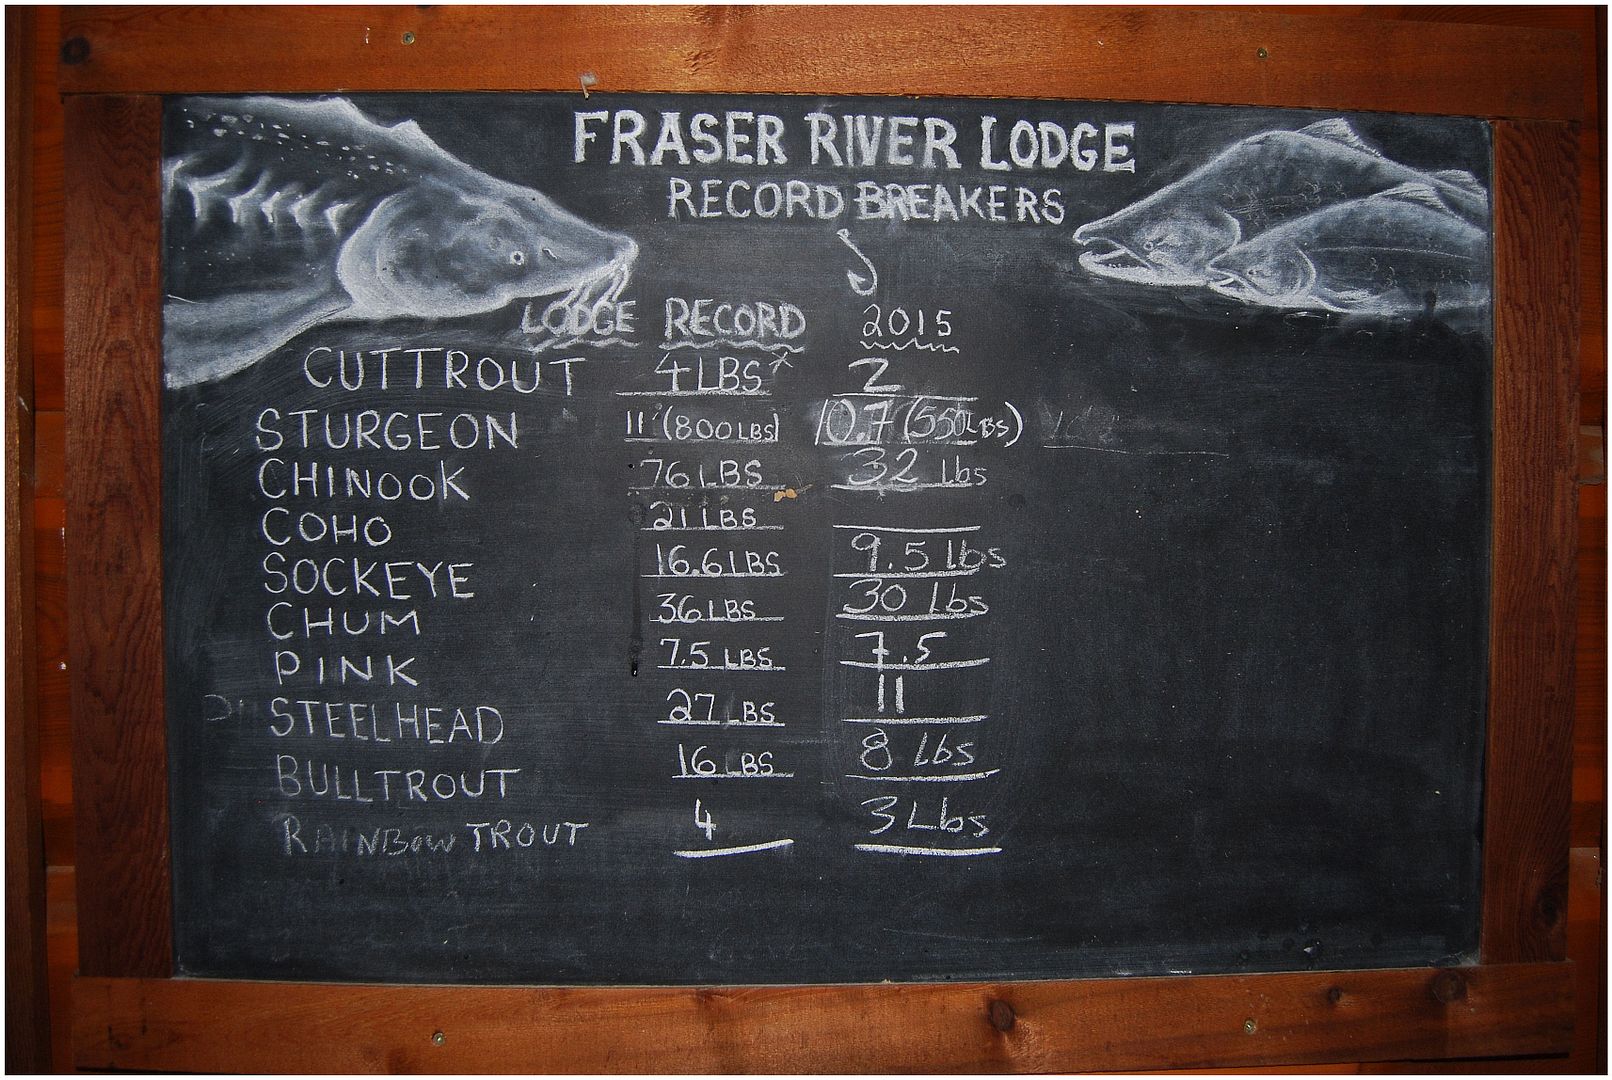 FRASER RIVER LODGE
RECORD BREAKERS
LODGE RECORD 2015
CUTTROUT 4 LBS* 2
STURGEON 11' (800 LBS) 10.7 (550 LBS)
CHINOOK 76 LBS 32 lbs
COHO 21 LBS
SOCKEYE 16.6 LBS 9.5 lbs
CHUM 36 LBS 30 lbs
PINK 7.5 LBS 7.5
STEELHEAD 27 LBS 11
BULLTROUT 16 LBS 8 Lbs
RAINBOW TROUT 4 3 Lbs